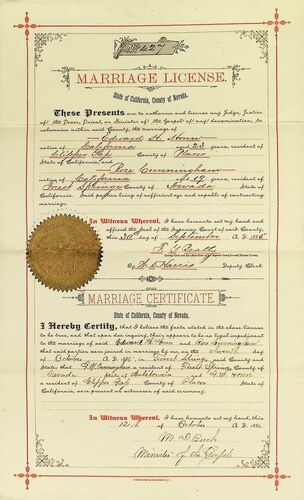 No 427
MARRIAGE LICENSE.
State of California, County of Nevada.
These Presents are to authorize and license any Judge, Justice
of the Peace, Priest, or Minister of the Gospel of any denomination, to
solemnize within said County, the marriage of
Edward H.
native of California aged 23 years, resident of
Clipper Gap County of Placer
State of California, and Rose Cunningham
native of California aged years, resident of
Springs County of Nevada State of
California. Said parties being of sufficient age and capable of contracting
marriage.
In Witness Whereof, I have hereunto set my hand and
affixed the Seal of the Superior Court of said County,
this day of September A.D. 1885
By W. D. Harris Deputy Clerk
MARRIAGE CERTIFICATE.
State of California, County of Nevada.
I Hereby Certify, that I believe the facts stated in the above license
to be true, and that upon due inquiry, there appears to be no legal impediment
to the marriage of said Edward H. and Rose Cunningham
that said parties were joined in marriage by me, on the day of
October A.D. 1885 in Springs, said County and
State; that Cunningham a resident of Springs County of
Nevada State of California and
a resident of Clipper Gap County of Placer State of
California, are present as witnesses of said ceremony.
In Witness Whereof, I have hereunto set my hand, this
12th of October A.D. 1885
M D Buck
Minister of the Gospel